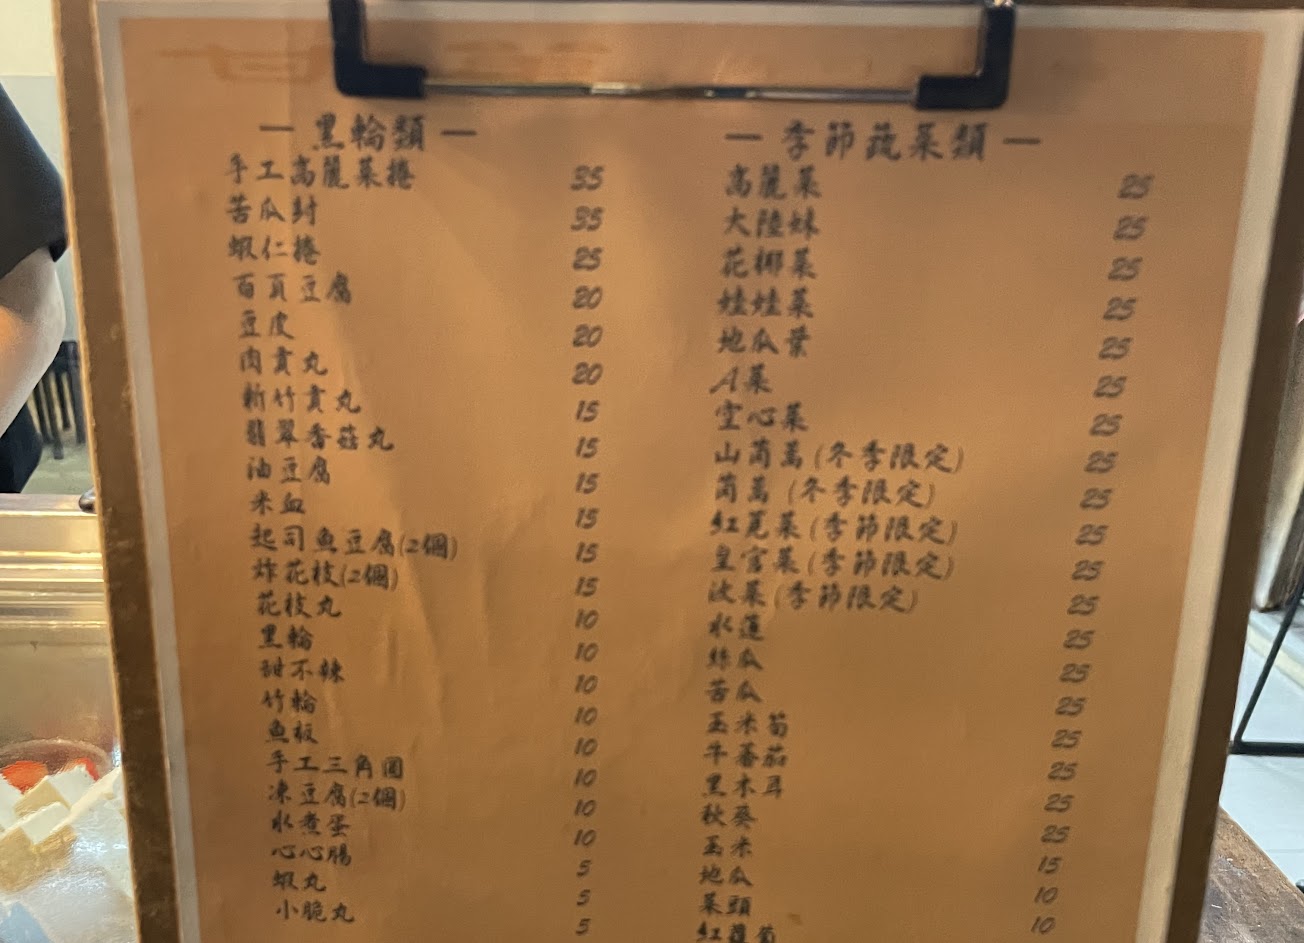 — 黑輪類 —
手工高麗菜捲 35
苦瓜封 35
蝦仁捲 25
百頁豆腐 20
豆皮 20
肉貢丸 20
新竹貢丸 15
翡翠香菇丸 15
油豆腐 15
米血 15
起司魚豆腐(2個) 15
炸花枝(2個) 15
花枝丸 10
黑輪 10
甜不辣 10
竹輪 10
魚板 10
手工三角圓 10
凍豆腐(2個) 10
水煮蛋 10
心心腸 5
蝦丸 5
小脆丸 5
— 季節蔬菜類 —
高麗菜 25
大陸妹 25
花椰菜 25
娃娃菜 25
地瓜葉 25
A菜 25
空心菜 25
山茼萵(冬季限定) 25
茼萵(冬季限定) 25
紅莧菜(季節限定) 25
皇宮菜(季節限定) 25
波菜(季節限定) 25
水蓮 25
絲瓜 25
苦瓜 25
玉米筍 25
牛蕃茄 25
黑木耳 25
秋葵 25
玉米 15
地瓜 10
菜頭 10
紅蘿蔔